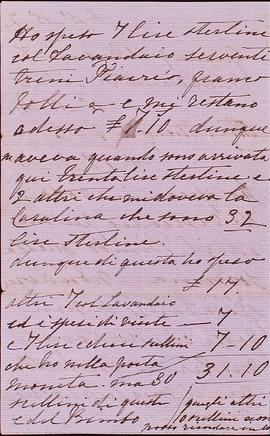 Ho speso 7 lire sterline
col Lavandaio serventi
treni franco
e mi restano
adesso £ 7.10 dunque
aveva quando sono arrivata
qui trenta lire sterline e
2 altri che mi doveva la
Carolina che sono 32
lire sterline.
dunque di questa ho speso
£ 17.
altri 7 col Lavandaio
ed i spesi di vinte — 7
e 7 lire e dieci sullini 7-10
che ho nella posta 31.10
moneta. ma 30
scellini di questi
e del Bimbo
questi altri